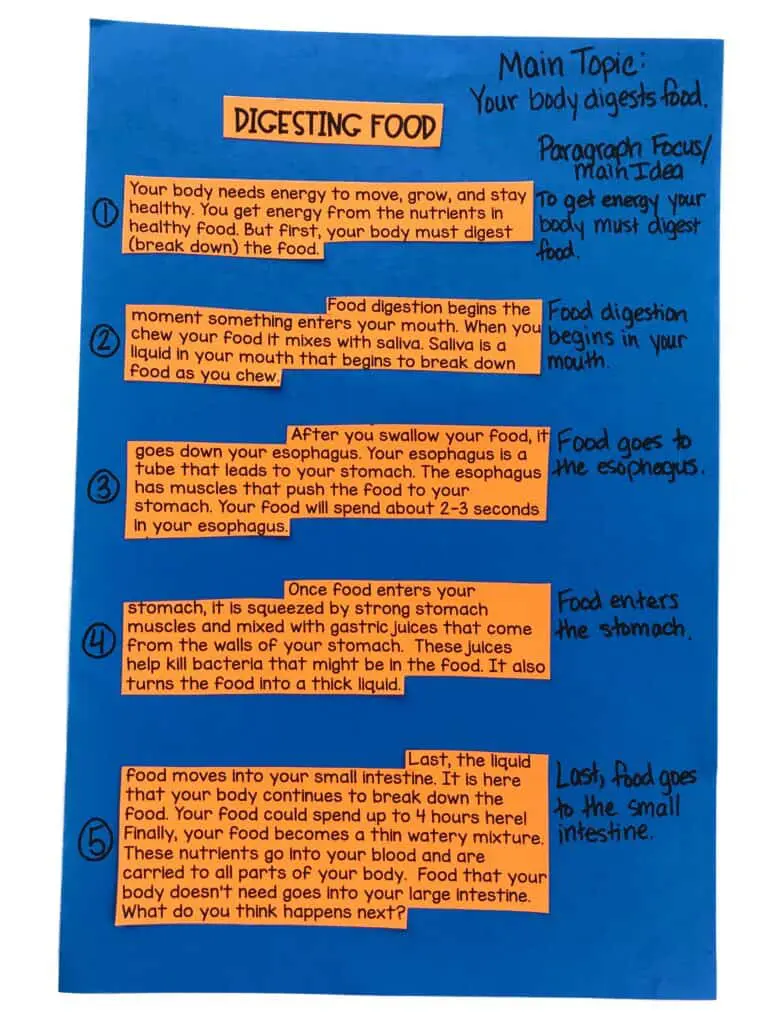 Main Topic:
Your body digests food.
DIGESTING FOOD
Paragraph Focus/
Main Idea
①
Your body needs energy to move, grow, and stay
healthy. You get energy from the nutrients in
healthy food. But first, your body must digest
(break down) the food.
To get energy your
body must digest
food.
②
Food digestion begins the
moment something enters your mouth. When you
chew your food it mixes with saliva. Saliva is a
liquid in your mouth that begins to break down
food as you chew.
Food digestion
begins in your
mouth.
③
After you swallow your food, it
goes down your esophagus. Your esophagus is a
tube that leads to your stomach. The esophagus
has muscles that push the food to your
stomach. Your food will spend about 2-3 seconds
in your esophagus.
Food goes to
the esophagus.
④
Once food enters your
stomach, it is squeezed by strong stomach
muscles and mixed with gastric juices that come
from the walls of your stomach. These juices
help kill bacteria that might be in the food. It also
turns the food into a thick liquid.
Food enters
the stomach.
⑤
Last, the liquid
food moves into your small intestine. It is here
that your body continues to break down the
food. Your food could spend up to 4 hours here!
Finally, your food becomes a thin watery mixture.
These nutrients go into your blood and are
carried to all parts of your body. Food that your
body doesn't need goes into your large intestine.
What do you think happens next?
Last, food goes
to the small
intestine.